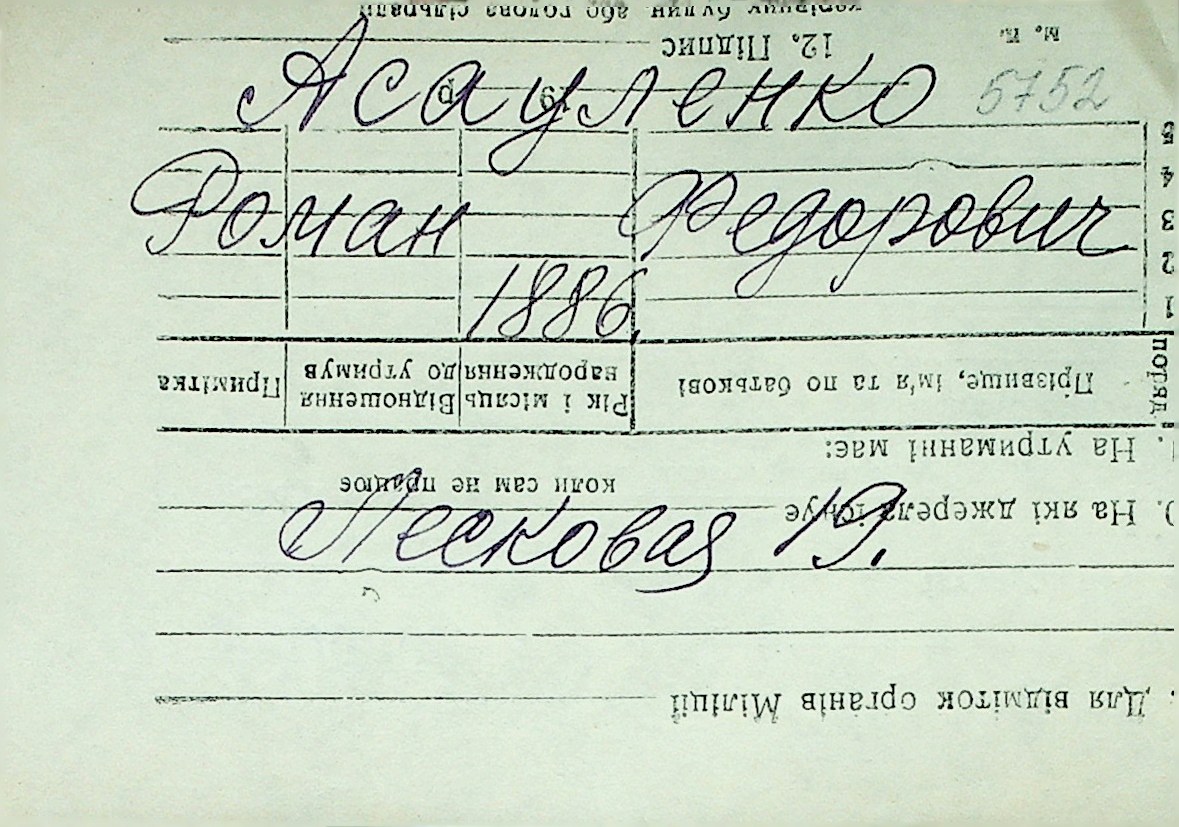 Асауленко 5752
Роман Федорович
1886.
Песковая 19.
Для відміток органів Міліції
коли сам не працює
На які джерела існує
На утриманні має:
поряд.
Прізвище, ім'я та по батькові
Рік і місяць народження
Відношення до утримув
Примітка
1
2
3
4
5
19 р.
12. Підпис
М. П.
керівник будин. або голова сільради